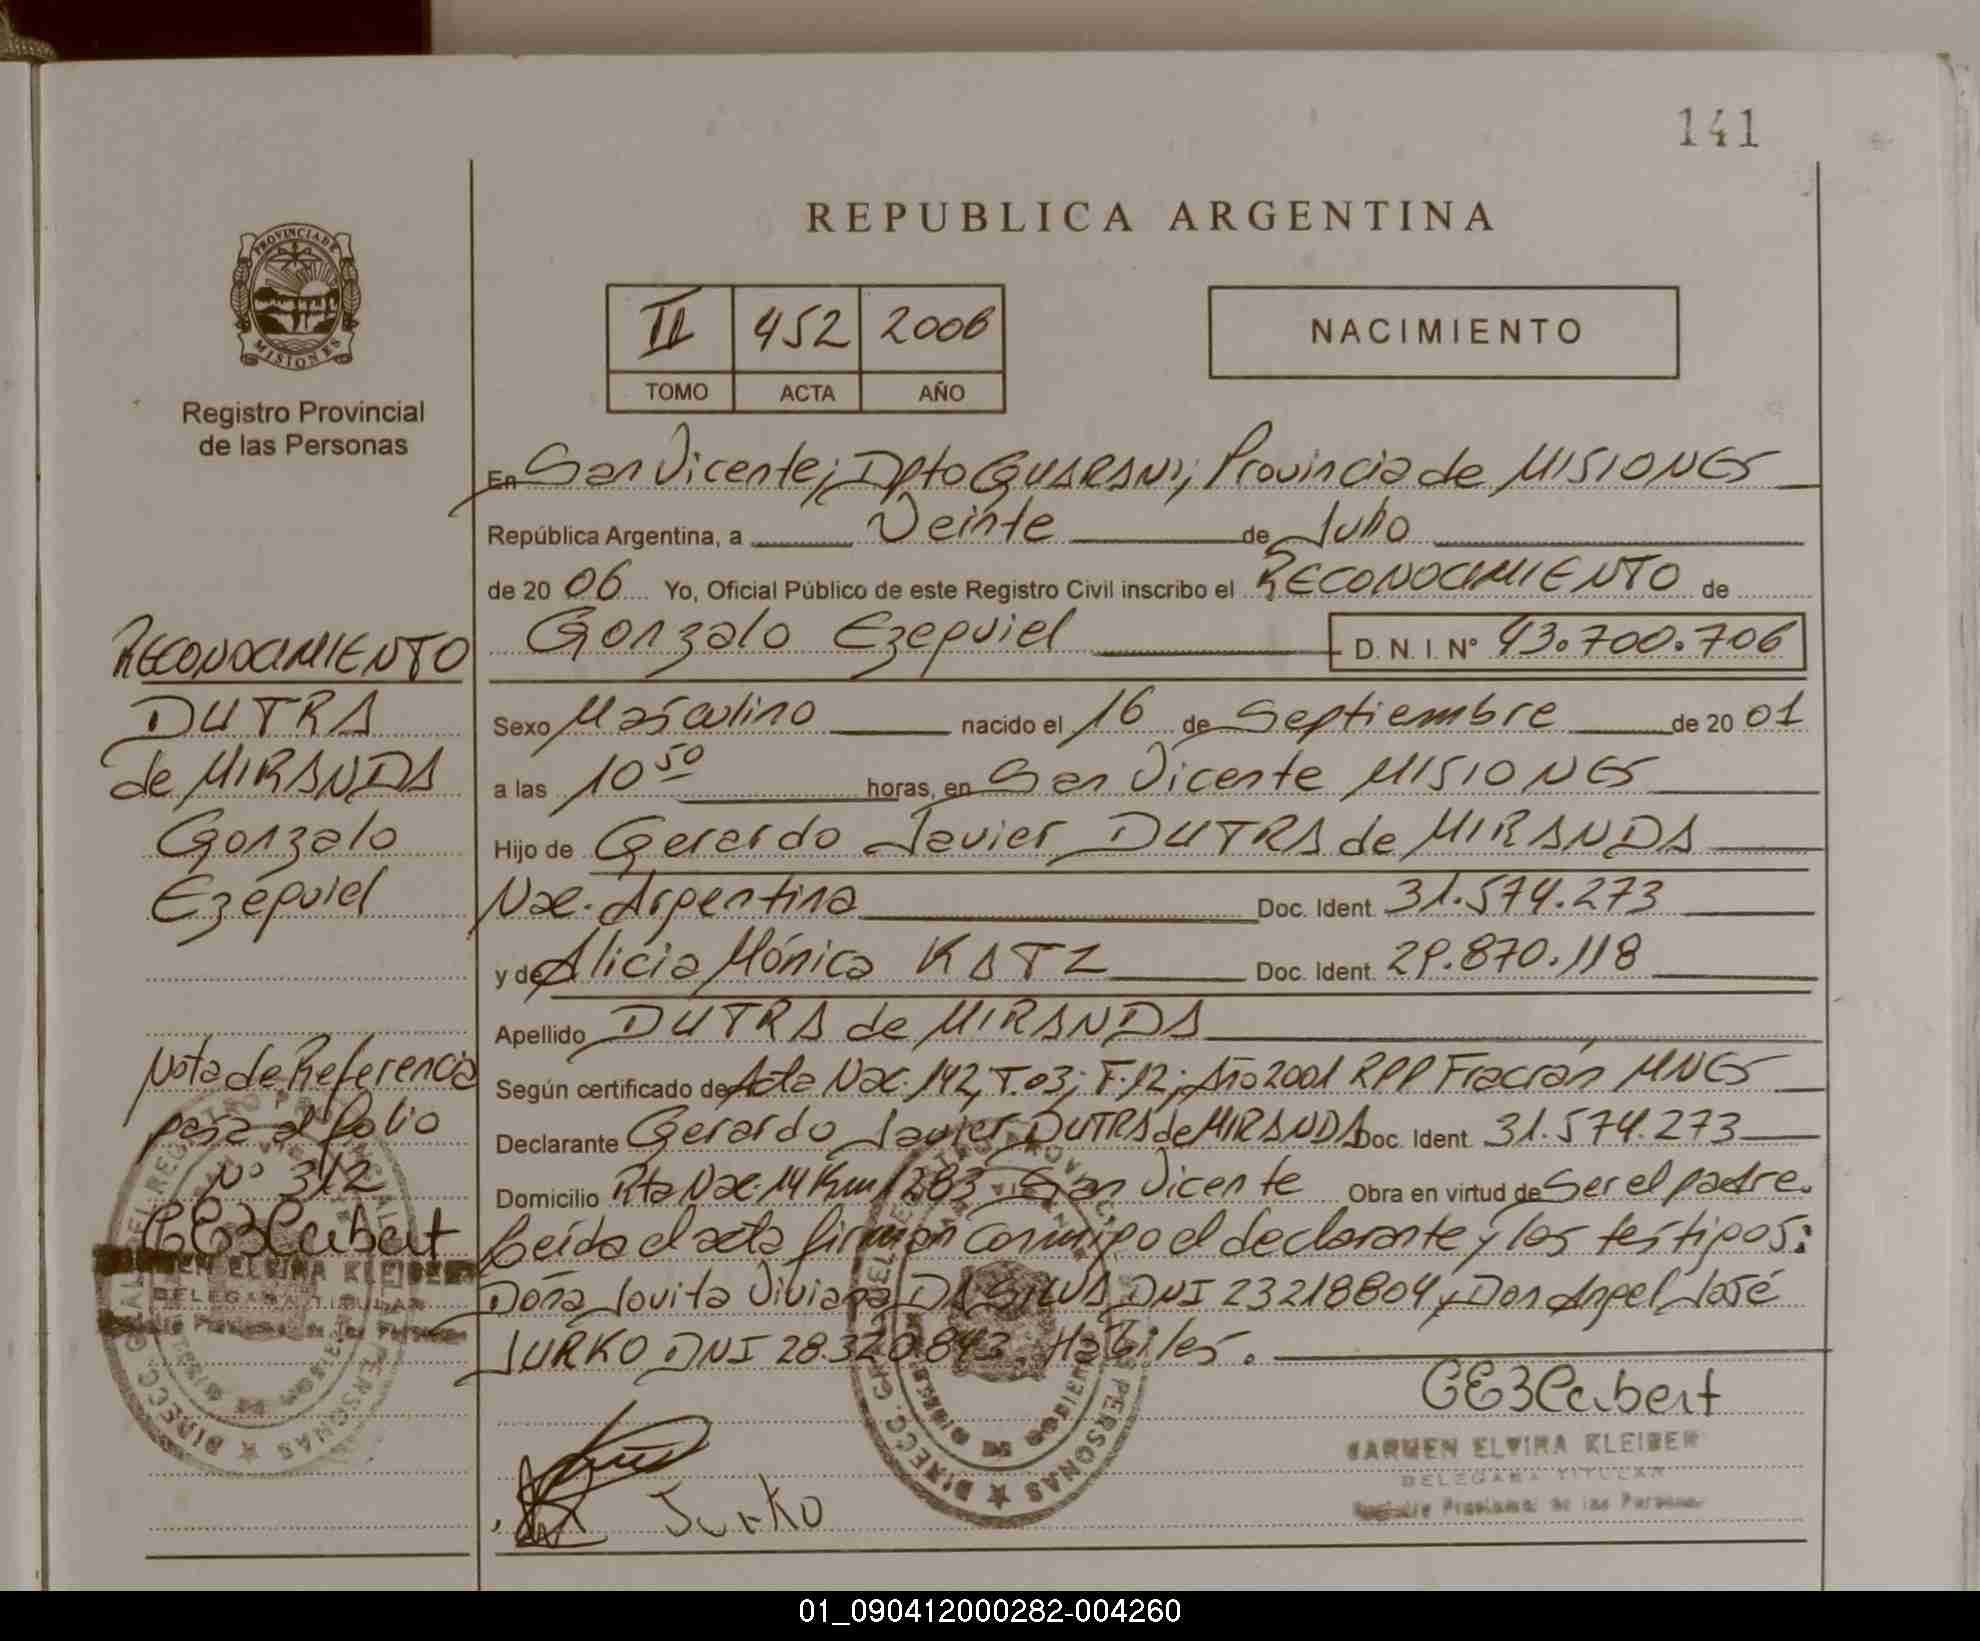 141
REPUBLICA ARGENTINA
PROVINCIA DE
MISIONES
Registro Provincial
de las Personas
II 452 2006
TOMO ACTA AÑO
NACIMIENTO
En San Vicente, Dpto GUARANI, Provincia de MISIONES
República Argentina, a Veinte de Julio
de 20 06 Yo, Oficial Público de este Registro Civil inscribo el RECONOCIMIENTO de
Gonzalo Ezequiel D. N. I. Nº 43.700.706
Sexo Masculino nacido el 16 de Septiembre de 20 01
a las 10 50 horas, en San Vicente MISIONES
Hijo de Gerardo Javier DUTRA de MIRANDA
Nac. Argentina Doc. Ident. 31.574.273
y de Alicia Mónica KATZ Doc. Ident. 29.870.118
Apellido DUTRA de MIRANDA
Según certificado de Acta Nac. 142, T.03; F.12; Año 2001 RPP Fracrán MNES
Declarante Gerardo Javier DUTRA de MIRANDA Doc. Ident. 31.574.273
Domicilio Rta Nac. 14 Km 1283 San Vicente Obra en virtud de Ser el padre.
Leída el acta firman conmigo el declarante y los testigos:
Doña Jovita Viviana DA SILVA DNI 23218804 y Don Angel José
JURKO DNI 28.320.843. Habiles.
RECONOCIMIENTO
DUTRA
de MIRANDA
Gonzalo
Ezequiel
Nota de Referencia
para el folio
Nº 312
CARMEN ELVIRA KLEIBER
DELEGADA TITULAR
Registro Provincial de las Personas
Jurko
CARMEN ELVIRA KLEIBER
DELEGADA TITULAR
Registro Provincial de las Personas
01_090412000282-004260